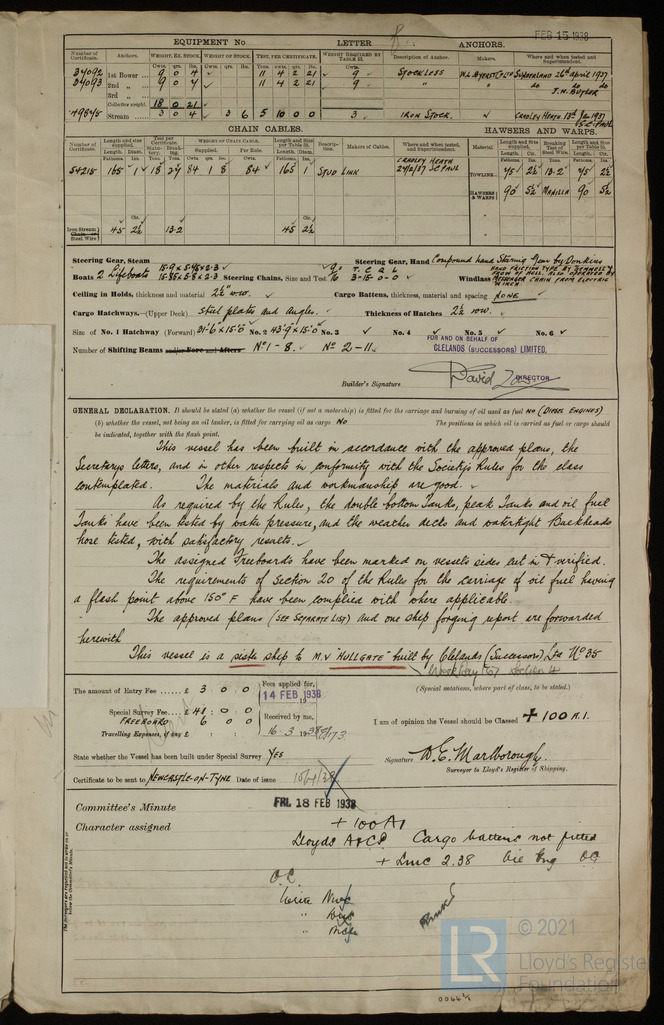 FEB 15 1938
EQUIPMENT No LETTER ANCHORS.
Number of Certificate. Anchors. WEIGHT, EX. STOCK. WEIGHT OF STOCK. TEST, PER CERTIFICATE. WEIGHT REQUIRED BY TABLE 53. Description of Anchor. Makers. Where and when tested and Superintendent.
34092 1st Bower 9 0 4 11 4 2 21 9 STOCKLESS W.L. BYERS & CO LTD SUNDERLAND 26th April 1937
34093 2nd 9 0 4 11 4 2 21 9 do do
3rd J.H. BUTLER
Collective weight. 18 0 21
49845 Stream 3 0 4 3 6 5 10 0 0 IRON STOCK. CRADLEY HEATH
CHAIN CABLES. HAWSERS AND WARPS.
Number of Certificate. Length and size supplied. Test per Certificate. WEIGHT OF CHAIN CABLE. Length and Size per Table 53. Description. Makers of Cables. Where and when tested, and Superintendent. Material Length and Size supplied. Breaking Test of Steel Wire. Length and Size per Table 53.
54215 165 1 18 27 84 1 8 84 165 1 STUD LINK CRADLEY HEATH 24/2/37 S C PAUL TOWLINE 75 2½ 13·2 75 2½
HAWSERS & WARPS 90 5½ MANILLA 90 5½
Iron Stream Chain or Steel Wire 45 2½ 13·2 45 2½
Steering Gear, Steam Steering Gear, Hand Compound hand Steering Gear by Donkins
Boats 2 Lifeboats 15·9 x 5·45 x 2·3 15·85 x 5·8 x 2·3 Steering Chains, Size and Test 9/16 T. C. Q. L. 3-15-0-0 Windlass HAND FRICTION TYPE BY EMMERSON OF HULL. ALSO OPERATED BY MESSENGER CHAIN FROM ELECTRIC WINCH
Ceiling in Holds, thickness and material 2½" W.W. Cargo Battens, thickness, material and spacing NONE
Cargo Hatchways.—(Upper Deck). Steel plates and angles. Thickness of Hatches 2½ W.W.
Size of No. 1 Hatchway (Forward) 31'6 x 15'0 No. 2 43'9 x 15'0 No. 3 No. 4 No. 5 No. 6
Number of Shifting Beams and/or Fore and Afters No 1 - 8. No 2 - 11.
FOR AND ON BEHALF OF
CLELANDS (SUCCESSORS) LIMITED.
DIRECTOR
Builder's Signature
GENERAL DECLARATION. It should be stated (a) whether the vessel (if not a motorship) is fitted for the carriage and burning of oil used as fuel NO (DIESEL ENGINES)
(b) whether the vessel, not being an oil tanker, is fitted for carrying oil as cargo NO The positions in which oil is carried as fuel or cargo should
be indicated, together with the flash point.
This vessel has been built in accordance with the approved plans, the
Secretarys letters, and in other respects in conformity with the Society's Rules for the class
contemplated. The materials and workmanship are good.
As required by the Rules, the double bottom Tanks, peak Tanks and oil fuel
Tanks have been tested by water pressure, and the weather decks and watertight Bulkheads
hose tested, with satisfactory results.
The assigned Freeboards have been marked on vessels sides cut in & verified.
The requirements of Section 20 of the Rules for the carriage of oil fuel having
a flash point above 150° F have been complied with where applicable.
The approved plans (SEE SEPARATE LIST) and one ship forging report are forwarded
herewith
This vessel is a sister ship to M.V "HULLGATE" built by Clelands (Successors) Ltd No 35
The amount of Entry Fee £ 3 : 0 : 0 Fees applied for, 14 FEB 1938
(Special notations, where part of class, to be stated.)
Special Survey Fee £ 48 : 0 : 0
FREEBOARD 6 0 0 Received by me,
Travelling Expenses, if any £ 16 3 1938
I am of opinion the Vessel should be Classed + 100 A.1.
State whether the Vessel has been built under Special Survey YES
Signature D. E. Marlborough.
Surveyor to Lloyd's Register of Shipping.
Certificate to be sent to NEWCASTLE-ON-TYNE Date of issue
Committee's Minute FRI. 18 FEB 1938
Character assigned + 100 A1
Lloyds A & CP Cargo battens not fitted
+ LMC 2.38 Oil Eng OG
The Surveyors are requested not to write on or below the Committee's Minute.
© 2021
LR
Lloyd's Register
Foundation